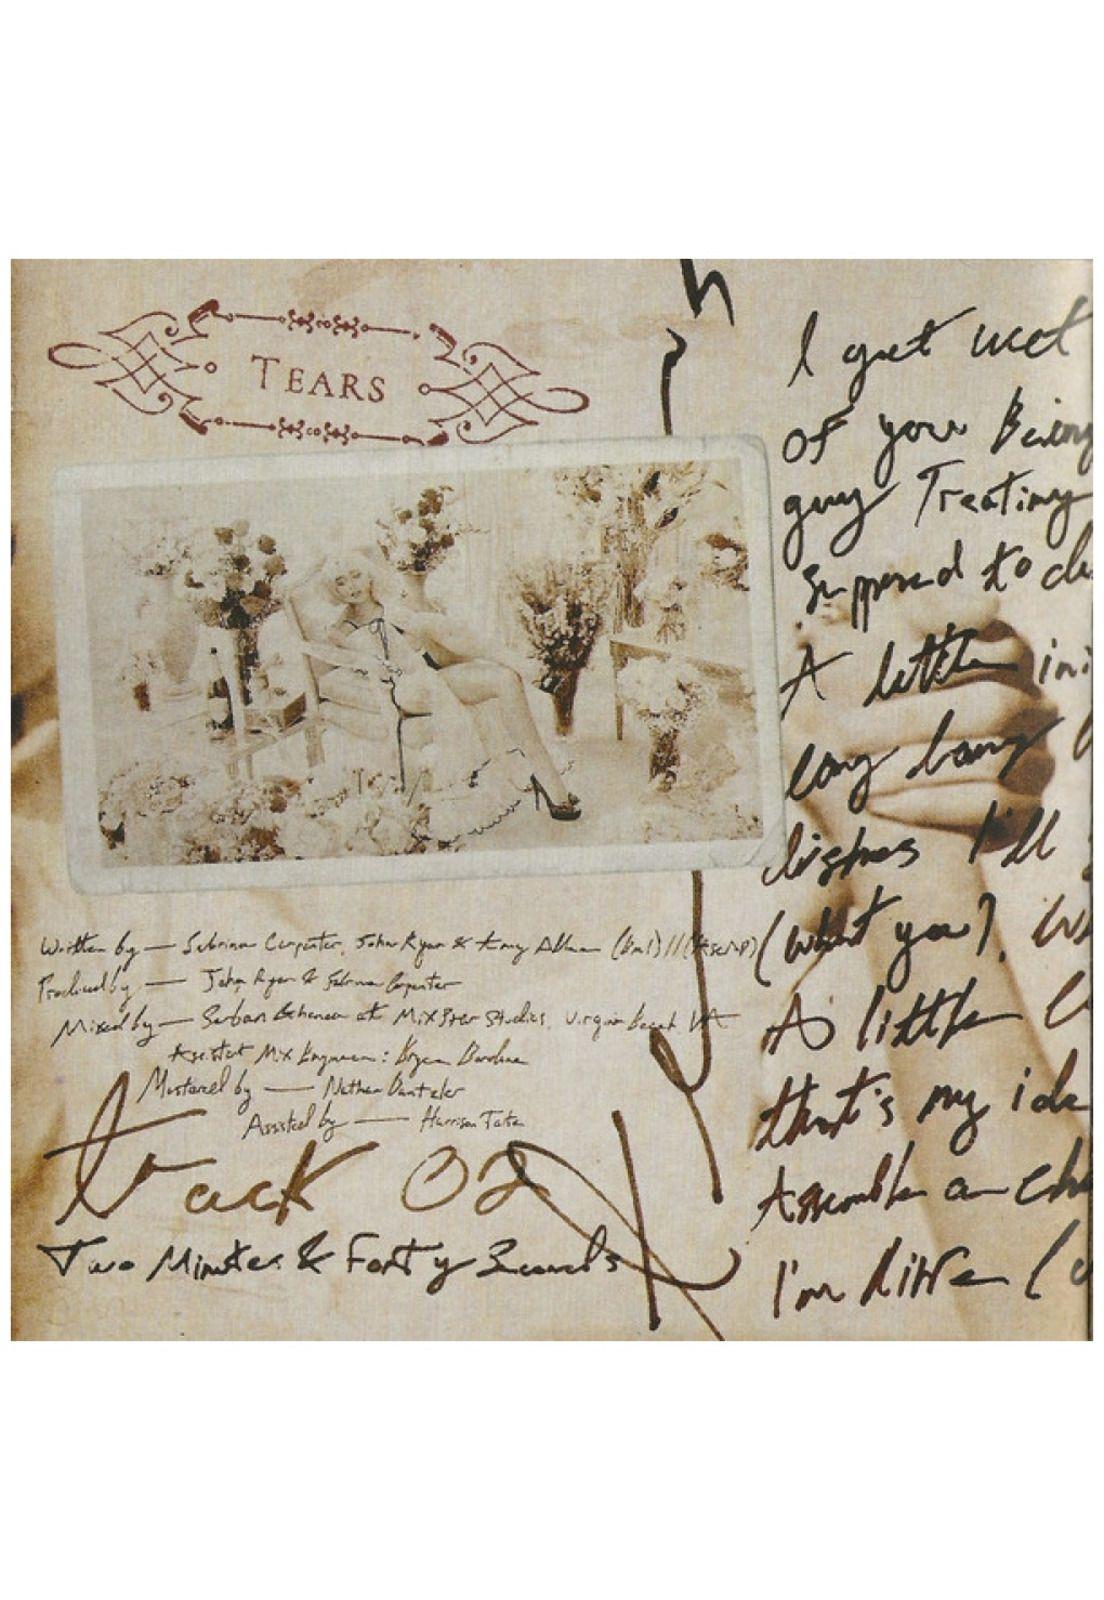 TEARS
Written by — Sabrina Carpenter, John Ryan & Amy Allen (BMI) // (ASCAP)
Produced by — John Ryan & Sabrina Carpenter
Mixed by — Serban Ghenea at MixStar Studios, Virginia Beach VA
Assistant Mix Engineer: Bryce Bordone
Mastered by — Nathan Dantzler
Assisted by — Harrison Tate
track 02
Two Minutes & Forty Seconds
I get wet
of you Being
guy Treating
supposed to
A little
long
dishes I'll
(what you).
A little
that's my ide
Assemble a cha
I'm like (